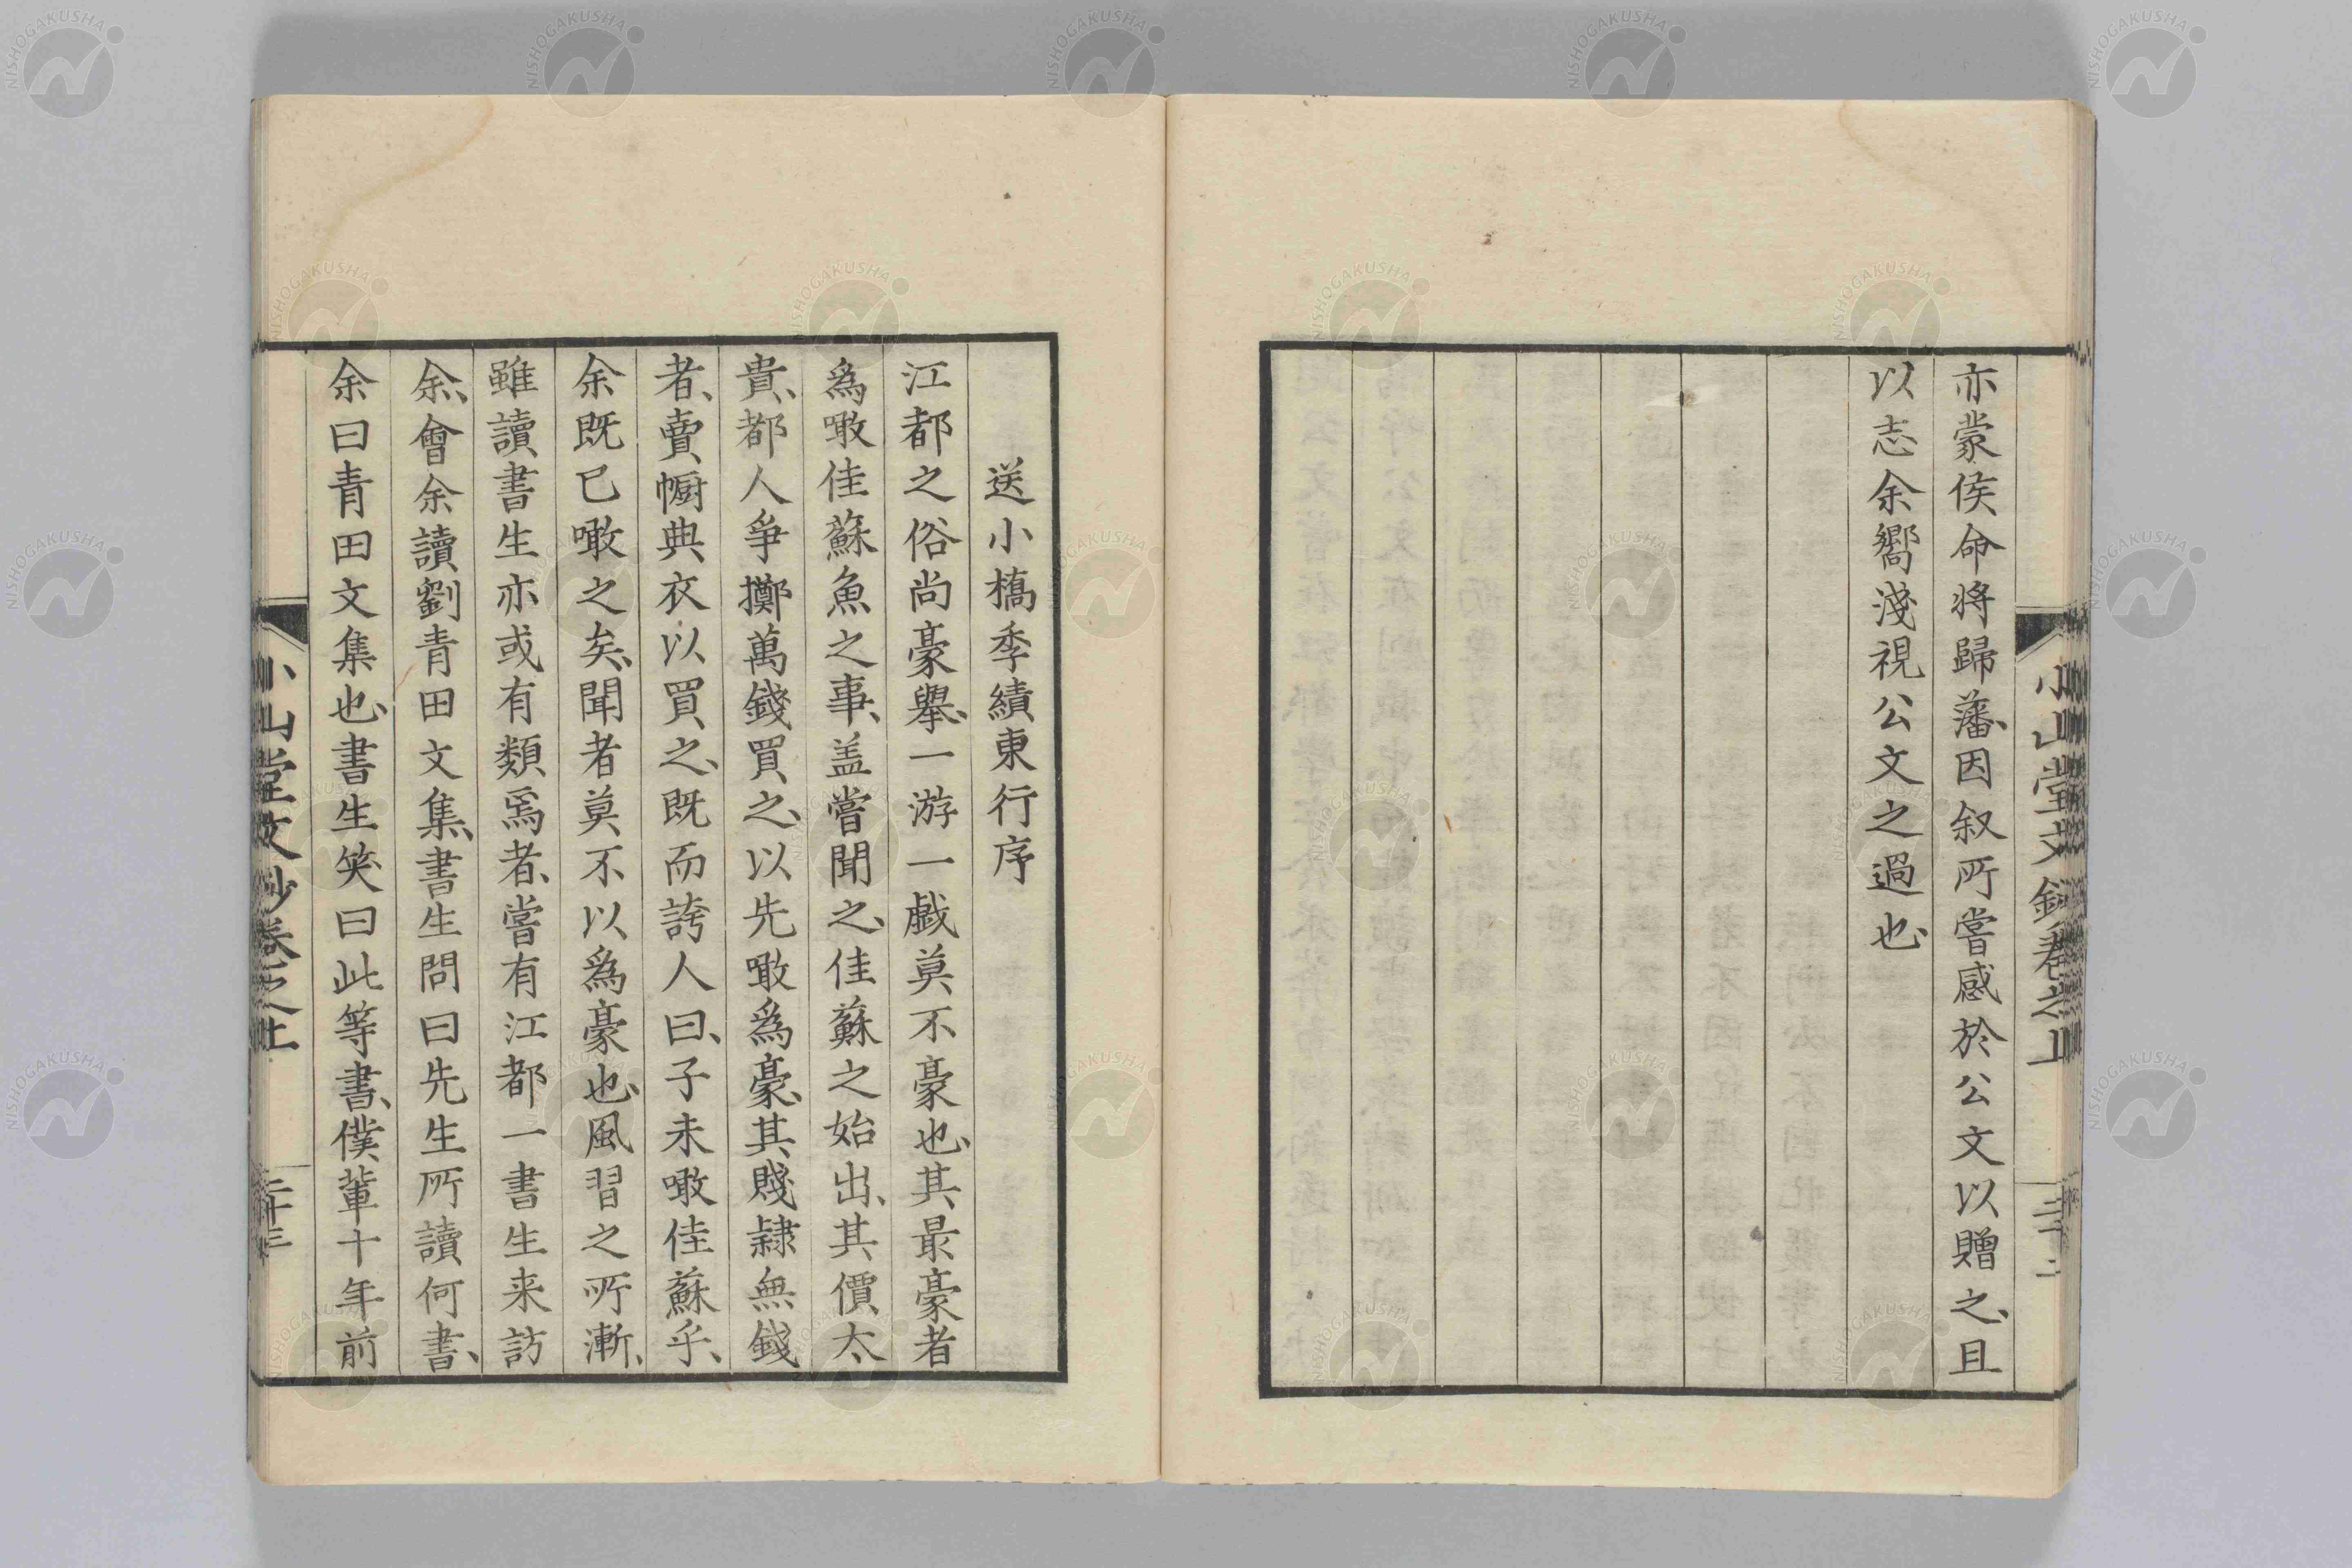 亦蒙侯命將歸藩、因叙所嘗感於公文以贈之、且
以志余嚮淺視公文之過也、
小山堂文鈔卷之上
二十二
送小橋季績東行序
江都之俗尚豪擧、一游一戯莫不豪也、其最豪者
爲噉佳蘇魚之事、盖嘗聞之、佳蘇之始出、其價太
貴、都人爭擲萬錢買之、以先噉爲豪、其賤隷無錢
者、賣幮典衣以買之、既而誇人曰、子未噉佳蘇乎、
余既已噉之矣、聞者莫不以爲豪也、風習之所漸、
雖讀書生亦或有類焉者、嘗有江都一書生来訪
余、會余讀劉青田文集、書生問曰先生所讀何書、
余曰青田文集也、書生笑曰此等書、僕輩十年前
小山堂文鈔卷之上
二十三
NISHOGAKUSHA